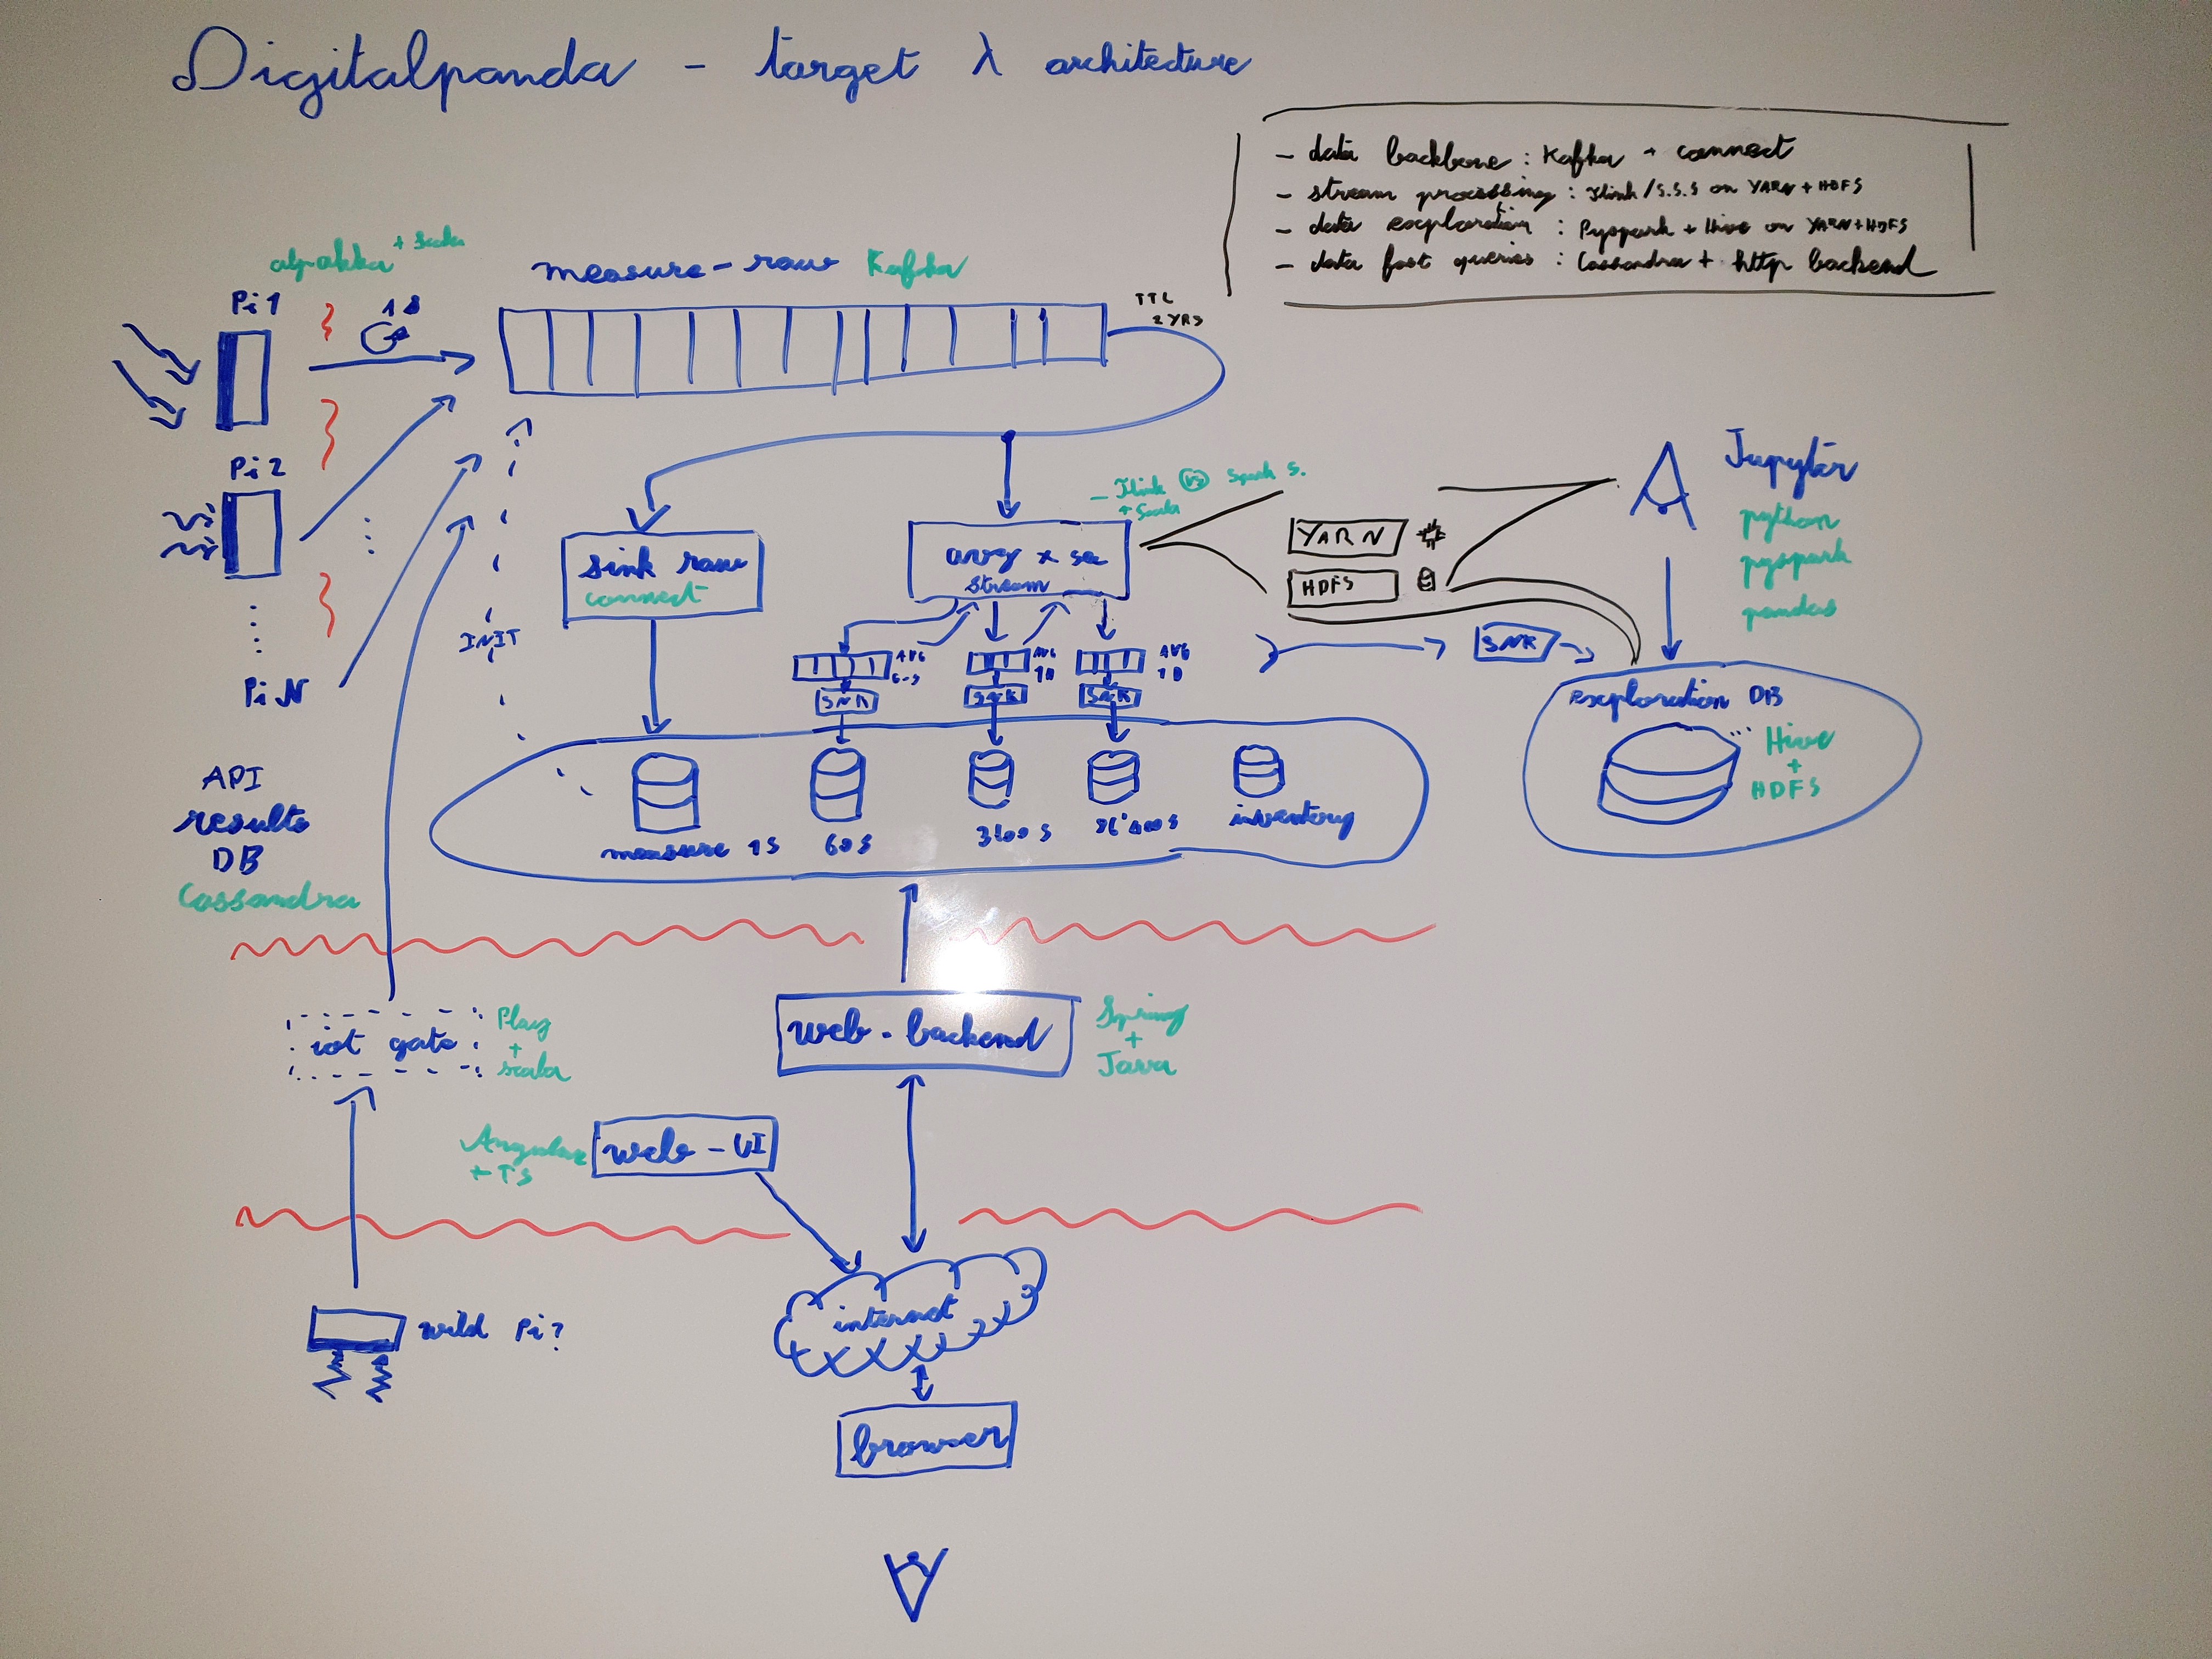 Digitalpanda - target λ architecture
- data backbone : Kafka + connect
- stream processing : Flink / S.S.S on YARN + HDFS
- data exploration : Pyspark + Hive on YARN + HDFS
- data fast queries : Cassandra + http backend
alpakka + Scala
measure-raw Kafka
Pi 1
1s
TTL
2 YRS
Pi 2
Pi N
INIT
sink raw
connect
- Flink vs Spark S.
+ Scala
avg x sec
stream
YARN
HDFS
Jupyter
python
pyspark
pandas
AVG
60S
AVG
AVG
1D
SNK
SNK
SNK
SNK
exploration DB
Hive
+
HDFS
API
results
DB
Cassandra
measure 1s
60s
3600 s
86'400 s
inventory
iot gate
Play
+
scala
web-backend
Spring
+
Java
Angular
+ TS
web-UI
internet
wild Pi?
browser